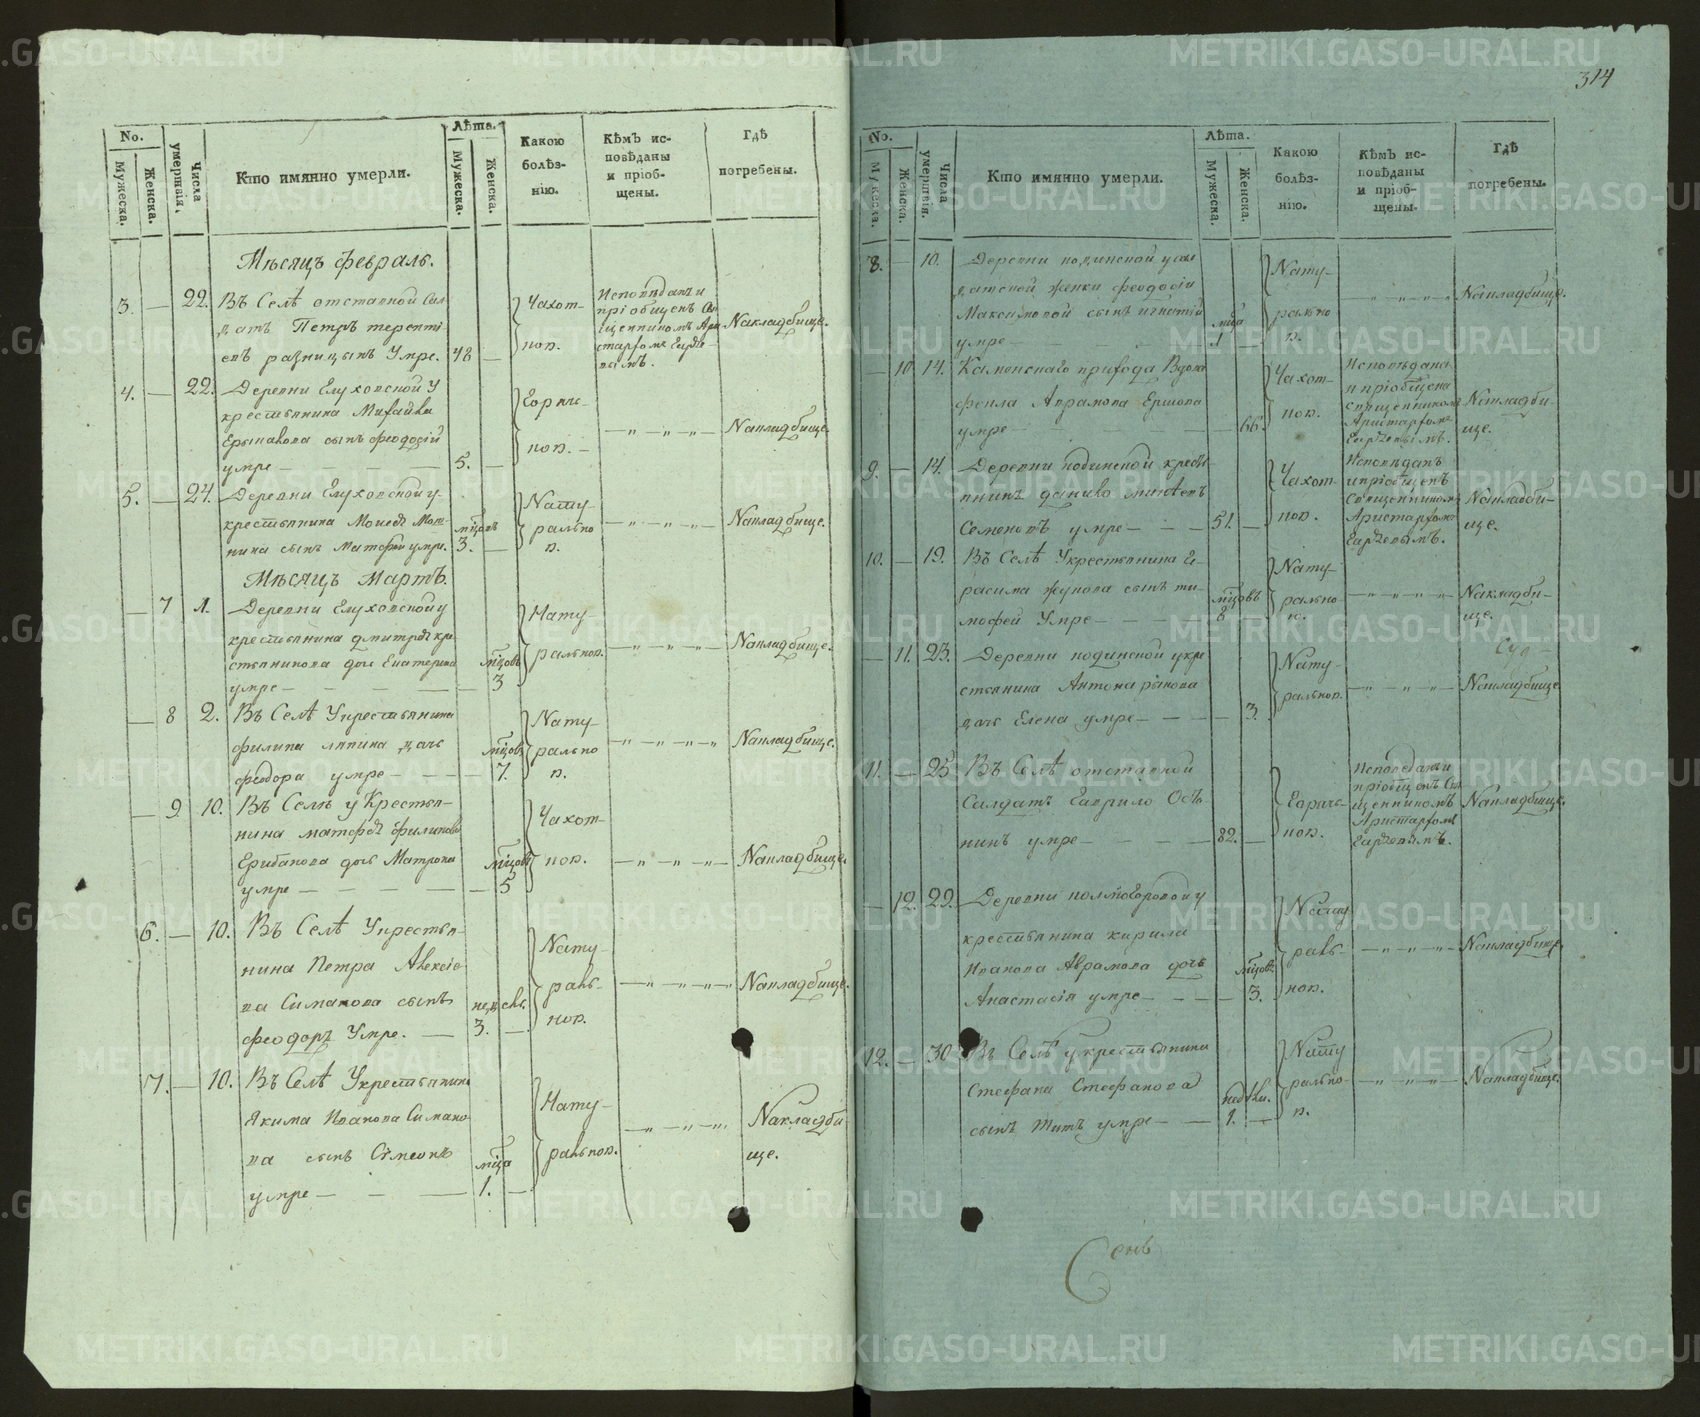 METRIKI.GASO-URAL.RU
314
No.
Мужеска.
Женска.
Числа умертвія.
Кто имянно умерли.
Лѣта.
Мужеска.
Женска.
Какою болѣз-нію.
Кѣмъ ис-повѣданы и пріоб-щены.
Гдѣ погребены.
Мѣсяцъ февраль.
3. — 22. Въ Селѣ отставной Сал
датъ Петръ терентї
евъ умре. 48 —
Чахот-
ноп.
Исповѣданъ и
пріобщенъ Св
щенникомъ Ари
стархомъ
Накладбище.
4. — 22. Деревни Елуховской у
крестьянина Михайла
сынъ феодосій
умре — — — — 5. —
Горяче-
ноп. —
— „ — „ — „ — Накладбище.
5. — 24. Деревни Елуховской у
крестьянина Моисея
сынъ Матфей умре. мцовъ 3. —
Nату-
рально
п.
— „ — „ — „ — Накладбище.
Мѣсяцъ Мартъ.
— 7 1. Деревни Елуховской у
крестьянина Дмитрея кре
стьянинова дочь Екатерина
умре — — — — мцовъ 3
Нату-
ральноп.
— „ — „ — „ — Накладбище.
— 8 2. Въ Селѣ Укрестьянина
филипа ляпина дочь
феодора умре — — — мцовъ 7.
Nату-
рально
п.
— „ — „ — „ — Накладбище.
— 9 10. Въ Селѣ у Крестья-
нина матфея филипова
дочь Матрона
умре — — — — мцовъ 5
Чахот-
ноп.
— „ — „ — „ — Накладбище.
6. — 10. Въ Селѣ Укрестья-
нина Петра Алексіе-
ва Симакова сынъ
феодоръ Умре. — недель 3. —
Nату-
раль-
ноп.
— „ — „ — „ — Накладбище.
7. — 10. Въ Селѣ Укрестьянина
Якима Иванова Симако-
ва сынъ Симеонъ
умре — — — мца 1. —
Нату-
ральноп.
— „ — „ — „ Накладби
ще.
No.
Мужеска.
Женска.
Числа умертвія.
Кто имянно умерли.
Лѣта.
Мужеска.
Женска.
Какою болѣз-нію.
Кѣмъ ис-повѣданы и пріоб-щены.
Гдѣ погребены.
8. — 10. Деревни кодинской у сал
датской женки феодосіи
Максимовой сынъ игнатій
умре — — — — мца 1
Nату-
рально
п.
— „ — „ — „ — Накладбище.
— 10 14. Каменскаго прихода Вдова
фекла Аврамова Ершова
умре — — — — 66.
Чахот-
ноп.
Исповѣдана
и пріобщена
священникомъ
Аристархомъ
Накладби-
ще.
9. — 14. Деревни кодинской кресть
янинъ данило
Семеновъ умре — — — 51. —
Чахот-
ноп.
Исповѣданъ
и пріобщенъ
Священникомъ
Аристархомъ
Накладби-
ще.
10. — 19. Въ Селѣ Укрестьянина Ге-
расима Жукова сынъ ти-
мофей Умре — — мцовъ 8 —
Nату-
рально-
ю.
— „ — „ — „ — Накладби-
ще.
— 11. 23. Деревни кодинской укре
стьянина Антона рыкова
дочь Елена умре — — — 3.
Nату-
ральноп.
— „ — „ — „ — Накладбище
11. — 25 Въ Селѣ отставной
Салдатъ Гаврило Ось
нинъ умре — — — — 82. —
Горяче-
ноп.
Исповеданъ и
пріобщенъ Свя
щенникомъ
Аристархомъ
Накладбище.
— 12. 29. Деревни
крестьянина кирила
Иванова Аврамова дочь
Анастасія умре — — — мцовъ 3.
Nату
раль-
ноп.
— „ — „ — „ — Накладбище
12. 30. Въ Селѣ укрестьянина
Стефана Стефанова
сынъ Титъ умре — — недѣли. 1. —
Nату
рально-
п.
— „ — „ — „ — Накладбище.
Сень